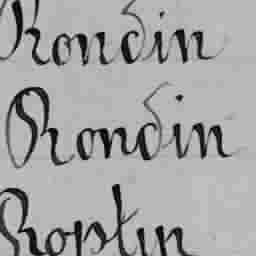 Rondin
Rondin
Roptin